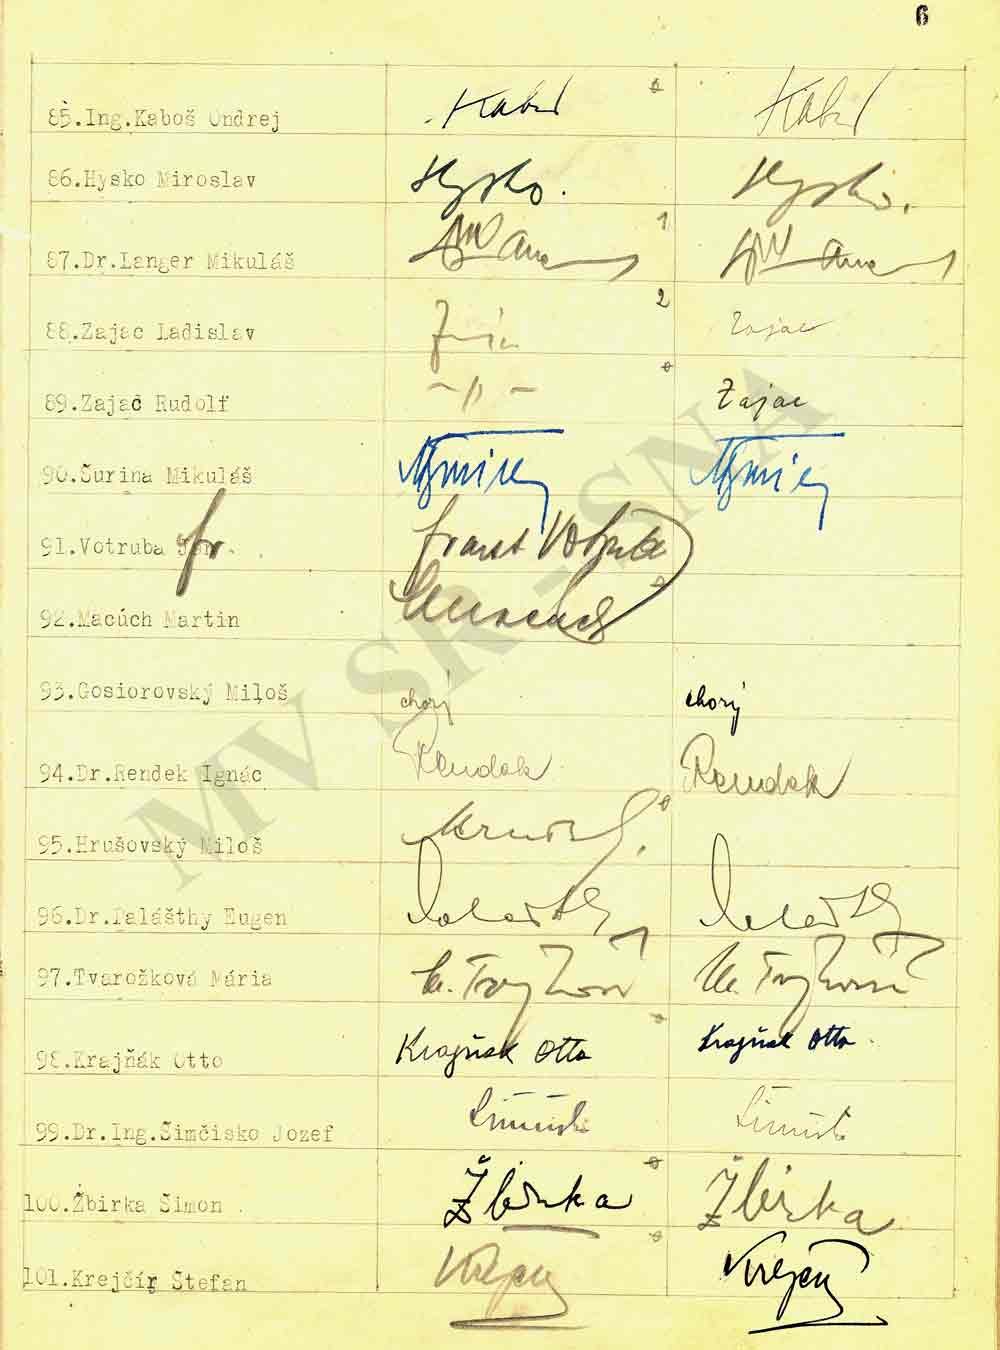 6
85.Ing.Kaboš Ondrej Kaboš o Kaboš
86.Hysko Miroslav Hysko. Hysko.
87.Dr.Langer Mikuláš 1
88.Zajac Ladislav 2 Zajac
89.Zajač Rudolf -"- o Zajac
90.Šurina Mikuláš
91.Votruba Jan. fr. Frant Votruba
92.Macúch Martin Macúch o
93.Gosiorovský Miloš chorý chorý
94.Dr.Rendek Ignác Rendek Rendek
95.Hrušovský Miloš o
96.Dr.Paláşthy Eugen
97.Tvarožková Mária M. Tvarožková M. Tvarožková
98.Krajňák Otto Krajňak Otto o Krajňak Otto
99.Dr.Ing.Šimčisko Jozef
100.Žbirka Šimon Žbirka o Žbirka
101.Krejčíř Štefan Krejčíř o Krejčíř
MV SR - SNA